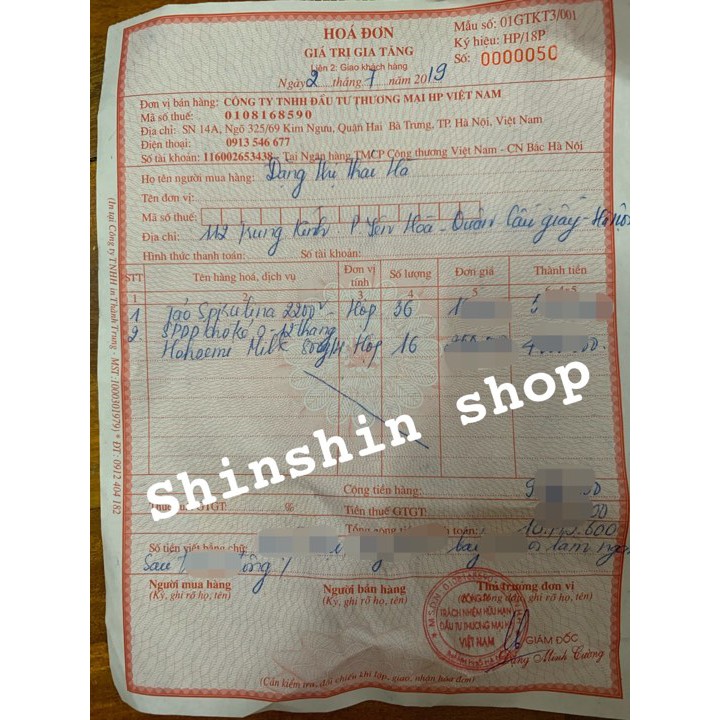 HOÁ ĐƠN
GIÁ TRỊ GIA TĂNG
Liên 2: Giao khách hàng
Ngày 2 tháng 7 năm 2019
Mẫu số: 01GTKT3/001
Ký hiệu: HP/18P
Số: 0000050
Đơn vị bán hàng: CÔNG TY TNHH ĐẦU TƯ THƯƠNG MẠI HP VIỆT NAM
Mã số thuế: 0108168590
Địa chỉ: SN 14A, Ngõ 325/69 Kim Ngưu, Quận Hai Bà Trưng, TP. Hà Nội, Việt Nam
Điện thoại: 0913 546 677
Số tài khoản: 116002653438 - Tại Ngân hàng TMCP Công thương Việt Nam - CN Bắc Hà Nội
Họ tên người mua hàng: Đặng Thị Thái Hà
Tên đơn vị:
Mã số thuế:
Địa chỉ: 112 Trung Kính - P Yên Hoà - Quận Cầu giấy - Hà Nội
Hình thức thanh toán: Số tài khoản:
STT Tên hàng hoá, dịch vụ Đơn vị tính Số lượng Đơn giá Thành tiền
1 3 4 5
1 Tảo Spirulina 2200v - Hộp 36
2. 0 - 12 tháng
Milk Hộp 16
Shinshin shop
Cộng tiền hàng: 9
GTGT: % Tiền thuế GTGT:
Tổng toán:
Số tiền viết bằng chữ:
Người mua hàng
(Ký, ghi rõ họ, tên)
Người bán hàng
(Ký, ghi rõ họ, tên)
Thủ trưởng đơn vị
TRÁCH NHIỆM HỮU HẠN
ĐẦU TƯ THƯƠNG MẠI HP
VIỆT NAM
GIÁM ĐỐC
Đặng Minh Cường
(Cần kiểm tra, đối chiếu khi lập, giao, nhận hoá đơn)
(In tại Công ty TNHH in Thành Trung - MST: 1000301979) * ĐT: 0912 404 182